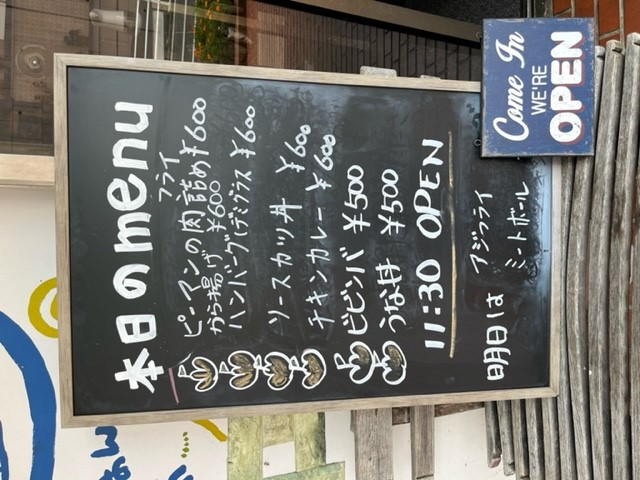 本日のmenu
フライ
ピーマンの肉詰め ¥600
から揚げ ¥600
ハンバーグ(デミグラス ¥600
ソースカツ丼 ¥600
チキンカレー ¥600
ビビンバ ¥500
うな丼 ¥500
11:30 OPEN
明日は アジフライ
ミートボール
Come In
WE'RE
OPEN